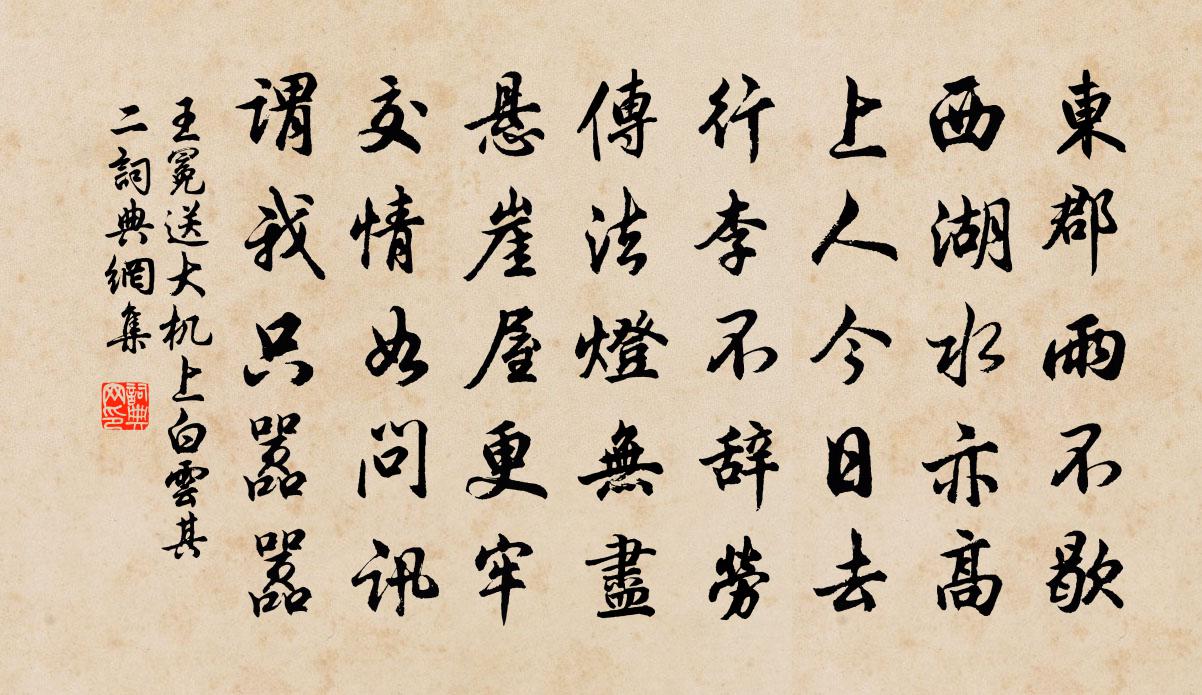 東郡雨不歇
西湖水亦高
上人今日去
行李不辞勞
傳法燈無盡
悬崖屋更牢
交情如问訊
謂我只嚣嚣
王冕送大机上白雲其
二詞典網集
詞典网印